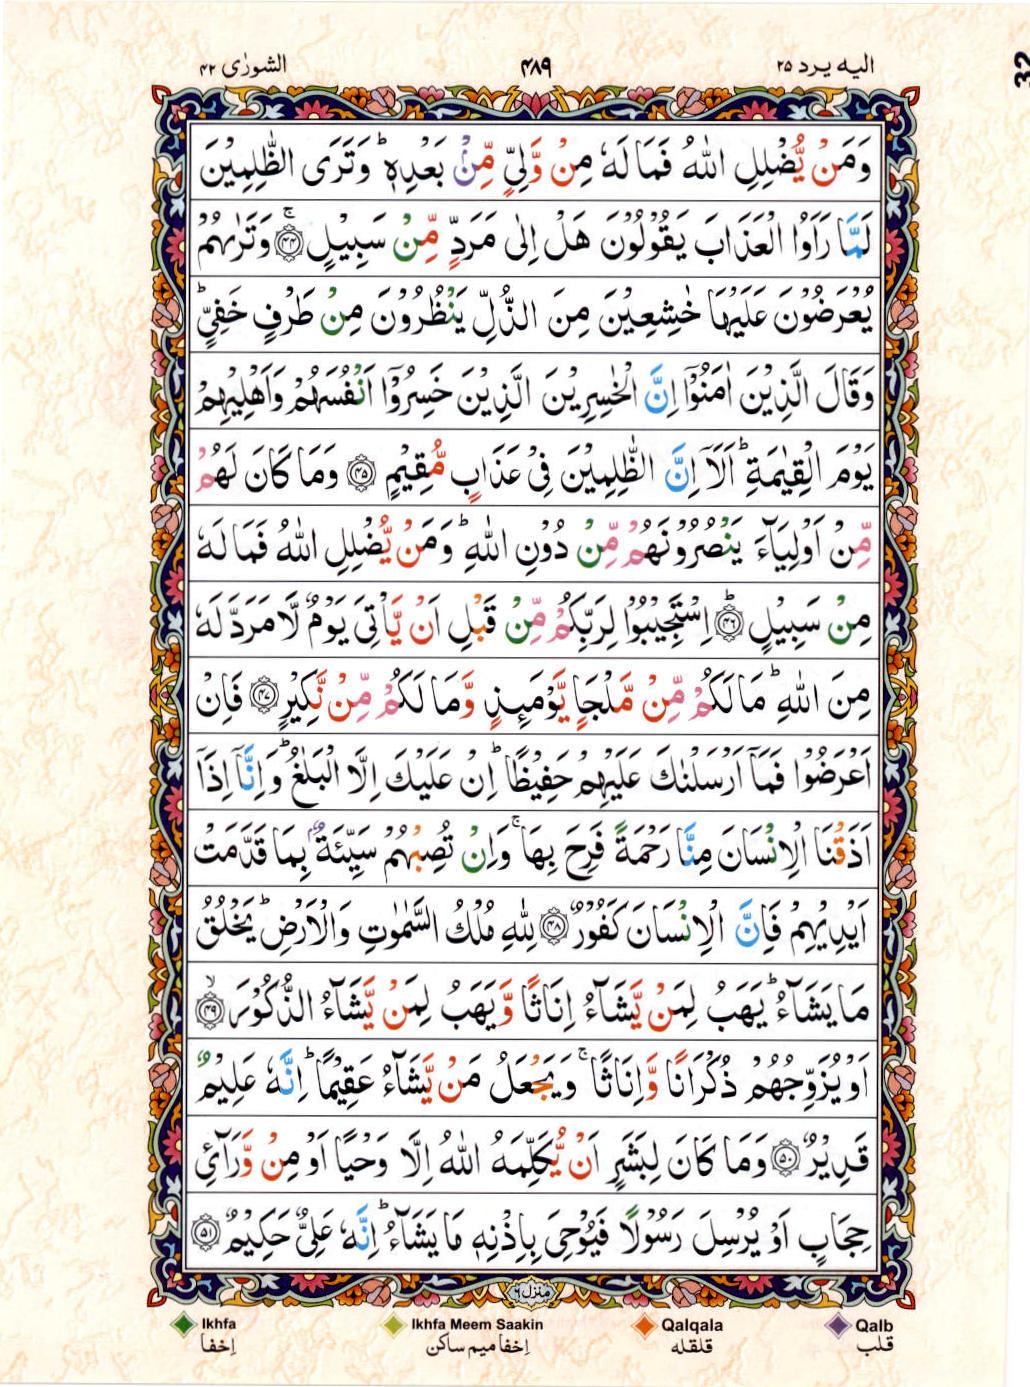 الشورٰى ٤٢ ٤٨٩ اليه يرد ٢٥
32
وَمَنْ يُّضْلِلِ اللّٰهُ فَمَا لَهٗ مِنْ وَّلِيٍّ مِّنْۢ بَعْدِهٖ ؕ وَتَرَى الظّٰلِمِيْنَ
لَمَّا رَاَوُا الْعَذَابَ يَقُوْلُوْنَ هَلْ اِلٰى مَرَدٍّ مِّنْ سَبِيْلٍ ۚ﴿٤٤﴾ وَتَرٰىهُمْ
يُعْرَضُوْنَ عَلَيْهَا خٰشِعِيْنَ مِنَ الذُّلِّ يَنْظُرُوْنَ مِنْ طَرْفٍ خَفِيٍّ ؕ
وَقَالَ الَّذِيْنَ اٰمَنُوْۤا اِنَّ الْخٰسِرِيْنَ الَّذِيْنَ خَسِرُوْۤا اَنْفُسَهُمْ وَاَهْلِيْهِمْ
يَوْمَ الْقِيٰمَةِ ؕ اَلَاۤ اِنَّ الظّٰلِمِيْنَ فِىْ عَذَابٍ مُّقِيْمٍ ﴿٤٥﴾ وَمَا كَانَ لَهُمْ
مِّنْ اَوْلِيَآءَ يَنْصُرُوْنَهُمْ مِّنْ دُوْنِ اللّٰهِ ؕ وَمَنْ يُّضْلِلِ اللّٰهُ فَمَا لَهٗ
مِنْ سَبِيْلٍ ؕ﴿٤٦﴾ اِسْتَجِيْبُوْا لِرَبِّكُمْ مِّنْ قَبْلِ اَنْ يَّاْتِىَ يَوْمٌ لَّا مَرَدَّ لَهٗ
مِنَ اللّٰهِ ؕ مَا لَكُمْ مِّنْ مَّلْجَاٍ يَّوْمَئِذٍ وَّمَا لَكُمْ مِّنْ نَّكِيْرٍ ﴿٤٧﴾ فَاِنْ
اَعْرَضُوْا فَمَاۤ اَرْسَلْنٰكَ عَلَيْهِمْ حَفِيْظًا ؕ اِنْ عَلَيْكَ اِلَّا الْبَلٰغُ ؕ وَاِنَّاۤ اِذَاۤ
اَذَقْنَا الْاِنْسَانَ مِنَّا رَحْمَةً فَرِحَ بِهَا ۚ وَاِنْ تُصِبْهُمْ سَيِّئَةٌۢ بِمَا قَدَّمَتْ
اَيْدِيْهِمْ فَاِنَّ الْاِنْسَانَ كَفُوْرٌ ﴿٤٨﴾ لِلّٰهِ مُلْكُ السَّمٰوٰتِ وَالْاَرْضِ ؕ يَخْلُقُ
مَا يَشَآءُ ؕ يَهَبُ لِمَنْ يَّشَآءُ اِنَاثًا وَّيَهَبُ لِمَنْ يَّشَآءُ الذُّكُوْرَ ۙ﴿٤٩﴾
اَوْ يُزَوِّجُهُمْ ذُكْرَانًا وَّاِنَاثًا ۚ وَيَجْعَلُ مَنْ يَّشَآءُ عَقِيْمًا ؕ اِنَّهٗ عَلِيْمٌ
قَدِيْرٌ ﴿٥٠﴾ وَمَا كَانَ لِبَشَرٍ اَنْ يُّكَلِّمَهُ اللّٰهُ اِلَّا وَحْيًا اَوْ مِنْ وَّرَآئِ
حِجَابٍ اَوْ يُرْسِلَ رَسُوْلًا فَيُوْحِىَ بِاِذْنِهٖ مَا يَشَآءُ ؕ اِنَّهٗ عَلِىٌّ حَكِيْمٌ ﴿٥١﴾
منزل ٦
Ikhfa Ikhfa Meem Saakin Qalqala Qalb
اِخفا اِخفا ميم ساكن قلقله قلب